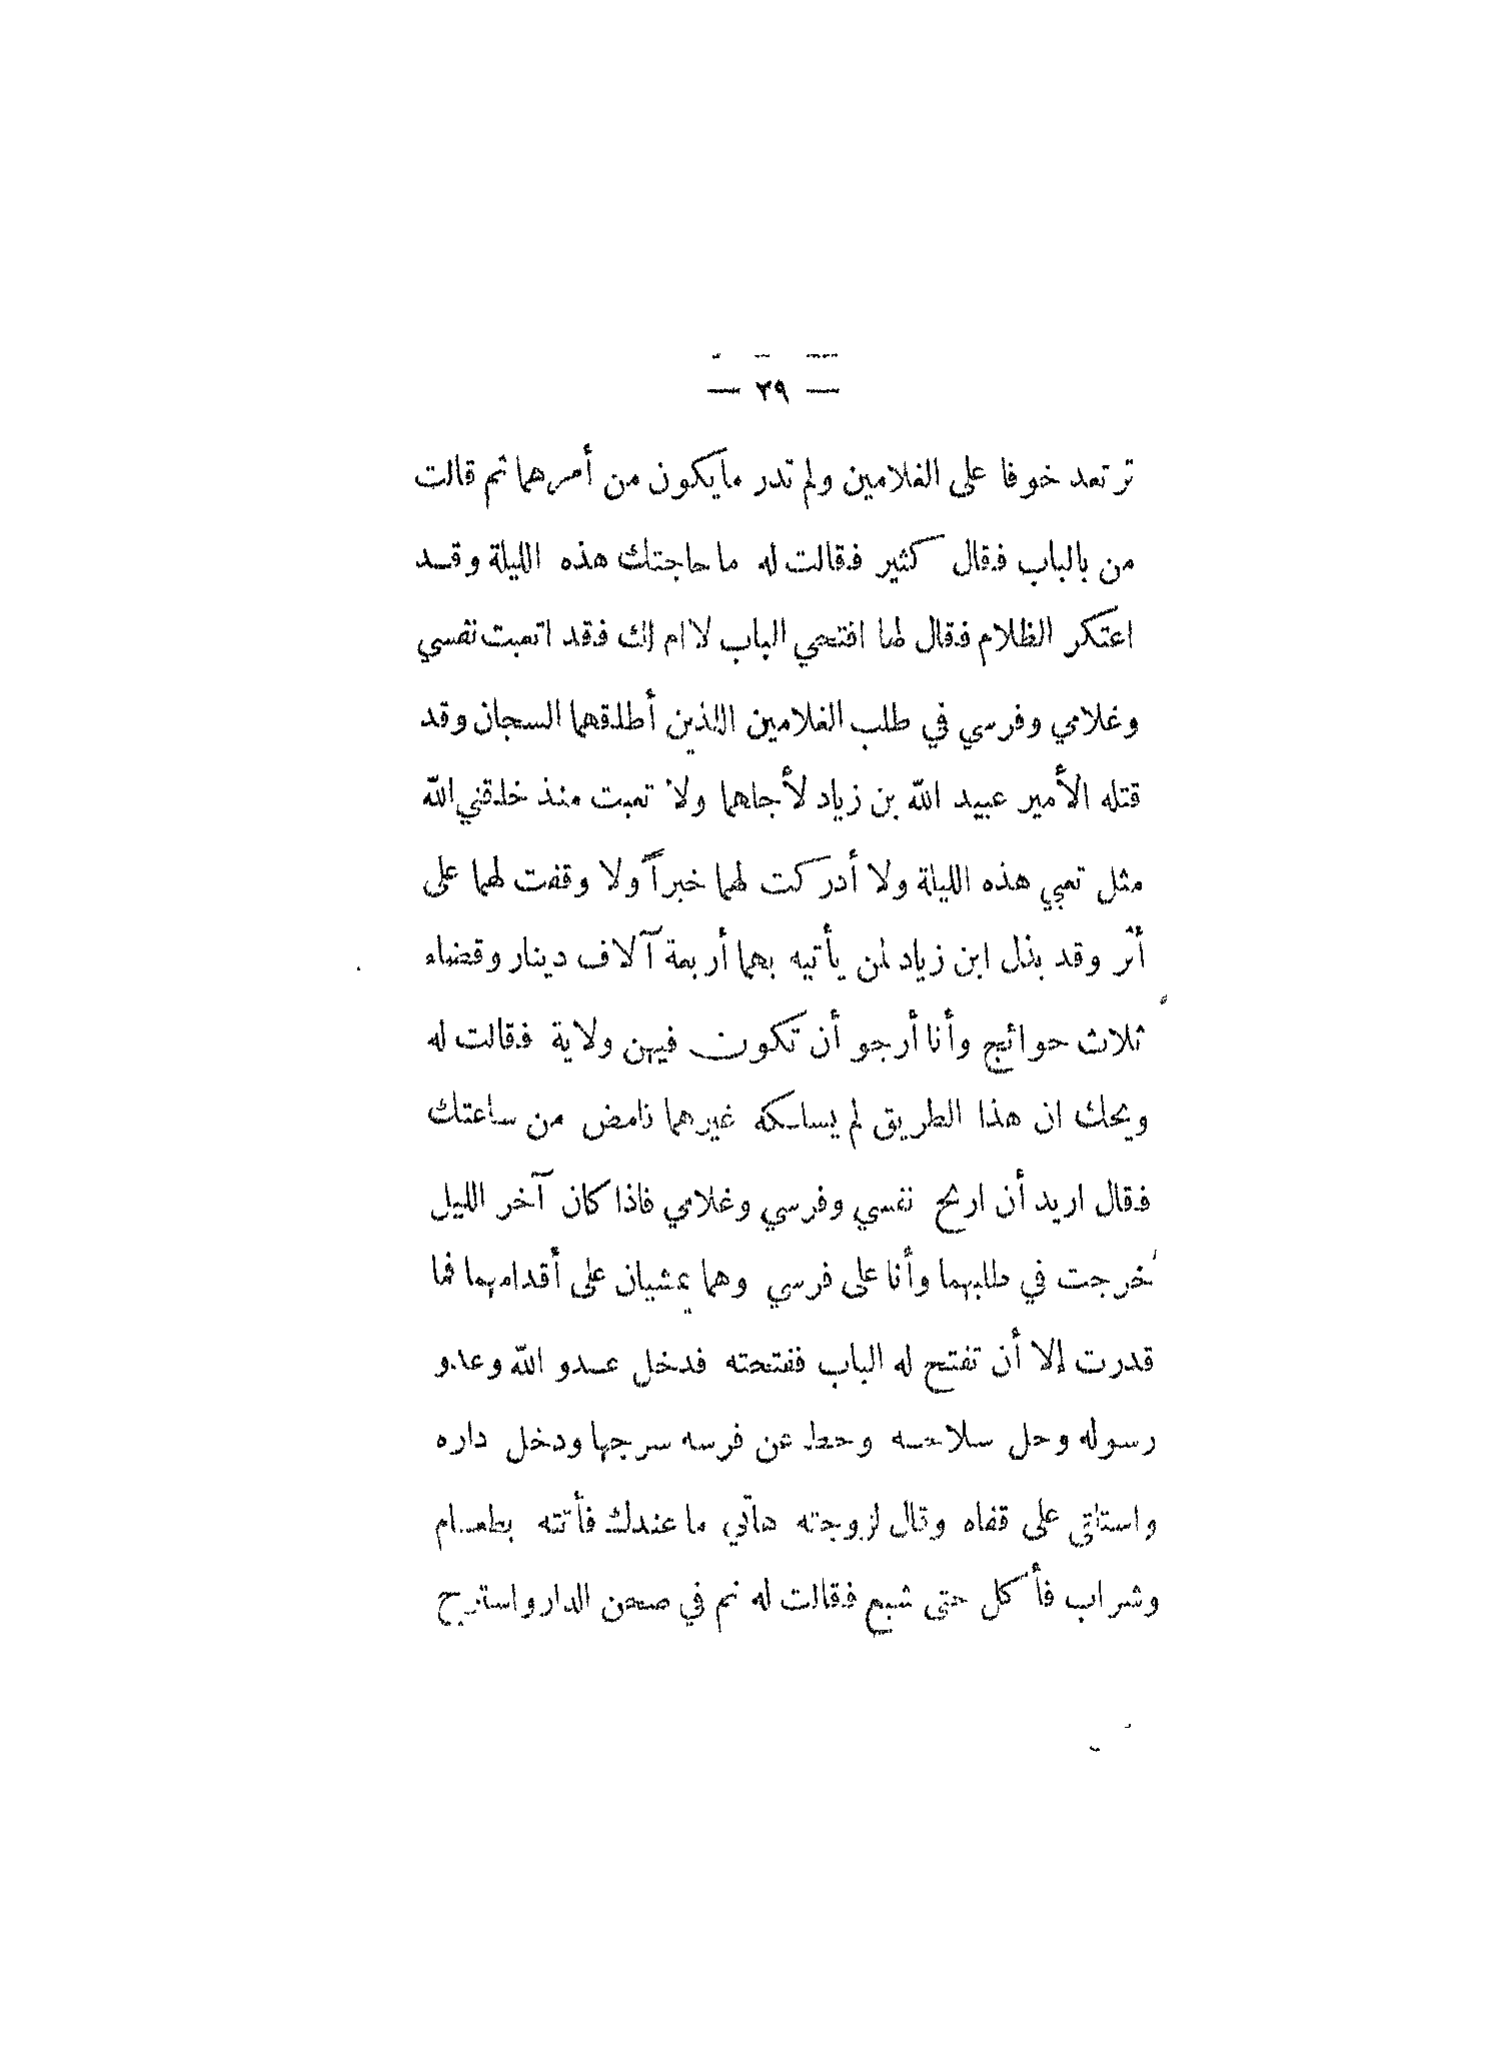 — ٢٩ —
ترتعد خوفا على الغلامين ولم تدر ما يكون من أمرهما ثم قالت
من بالباب فقال كثير فقالت له ما حاجتك هذه الليلة وقد
اعتكر الظلام فقال لها افتحي الباب لا ام لك فقد اتعبت نفسي
وغلامي وفرسي في طلب الغلامين اللذين أطلقهما السجان وقد
قتله الأمير عبيد الله بن زياد لأجلهما ولا تعبت منذ خلقني الله
مثل تعبي هذه الليلة ولا أدركت لهما خبراً ولا وقفت لهما على
أثر وقد بذل ابن زياد لمن يأتيه بهما أربعة آلاف دينار وقضاء
ثلاث حوائج وأنا أرجو أن تكون فيهن ولاية فقالت له
ويحك ان هذا الطريق لم يسلكه غيرهما فامض من ساعتك
فقال اريد أن اريح نفسي وفرسي وغلامي فاذا كان آخر الليل
خرجت في طلبهما وأنا على فرسي وهما يمشيان على أقدامهما فما
قدرت إلا أن تفتح له الباب ففتحته فدخل عدو الله وعدو
رسوله وحل سلاحه وحط عن فرسه سرجها ودخل داره
واستلقى على قفاه وقال لزوجته هاتي ما عندك فأتته بطعام
وشراب فأكل حتى شبع فقالت له نم في صحن الدار واسترح